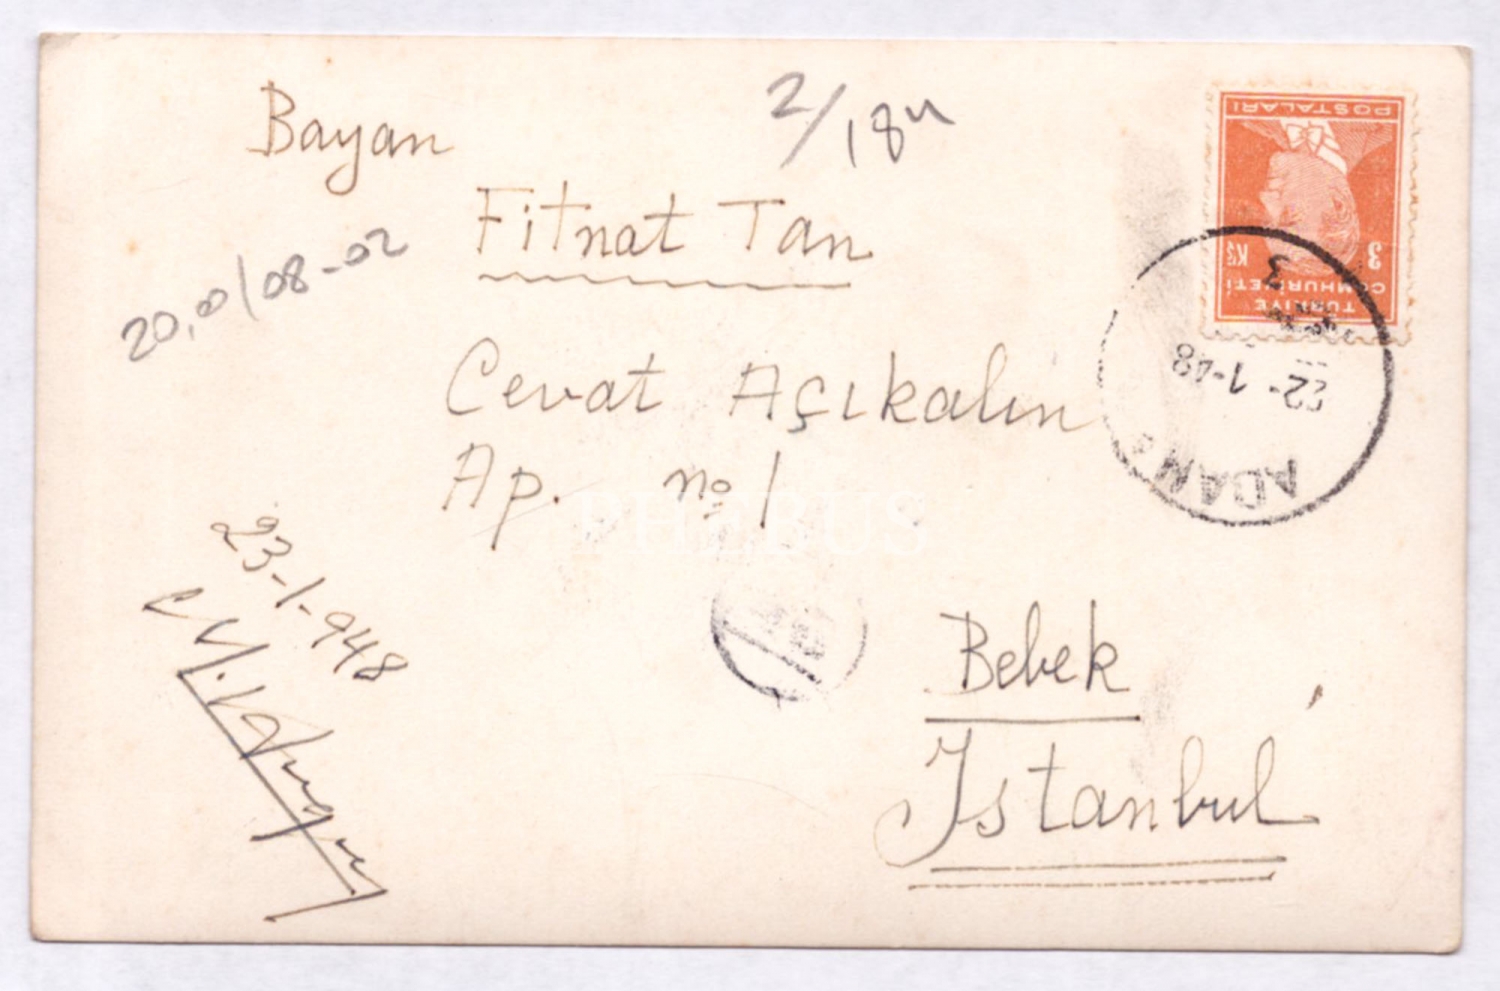 Bayan
2/18
Fitnat Tan
20,00/08-02
Cevat Açıkalın
Ap. no 1
PHEBUS
23-1-948
Bebek
İstanbul
POSTALARI
3 Kş
TÜRKİYE
CUMHURİYETİ
3
22-1-48
ADANA